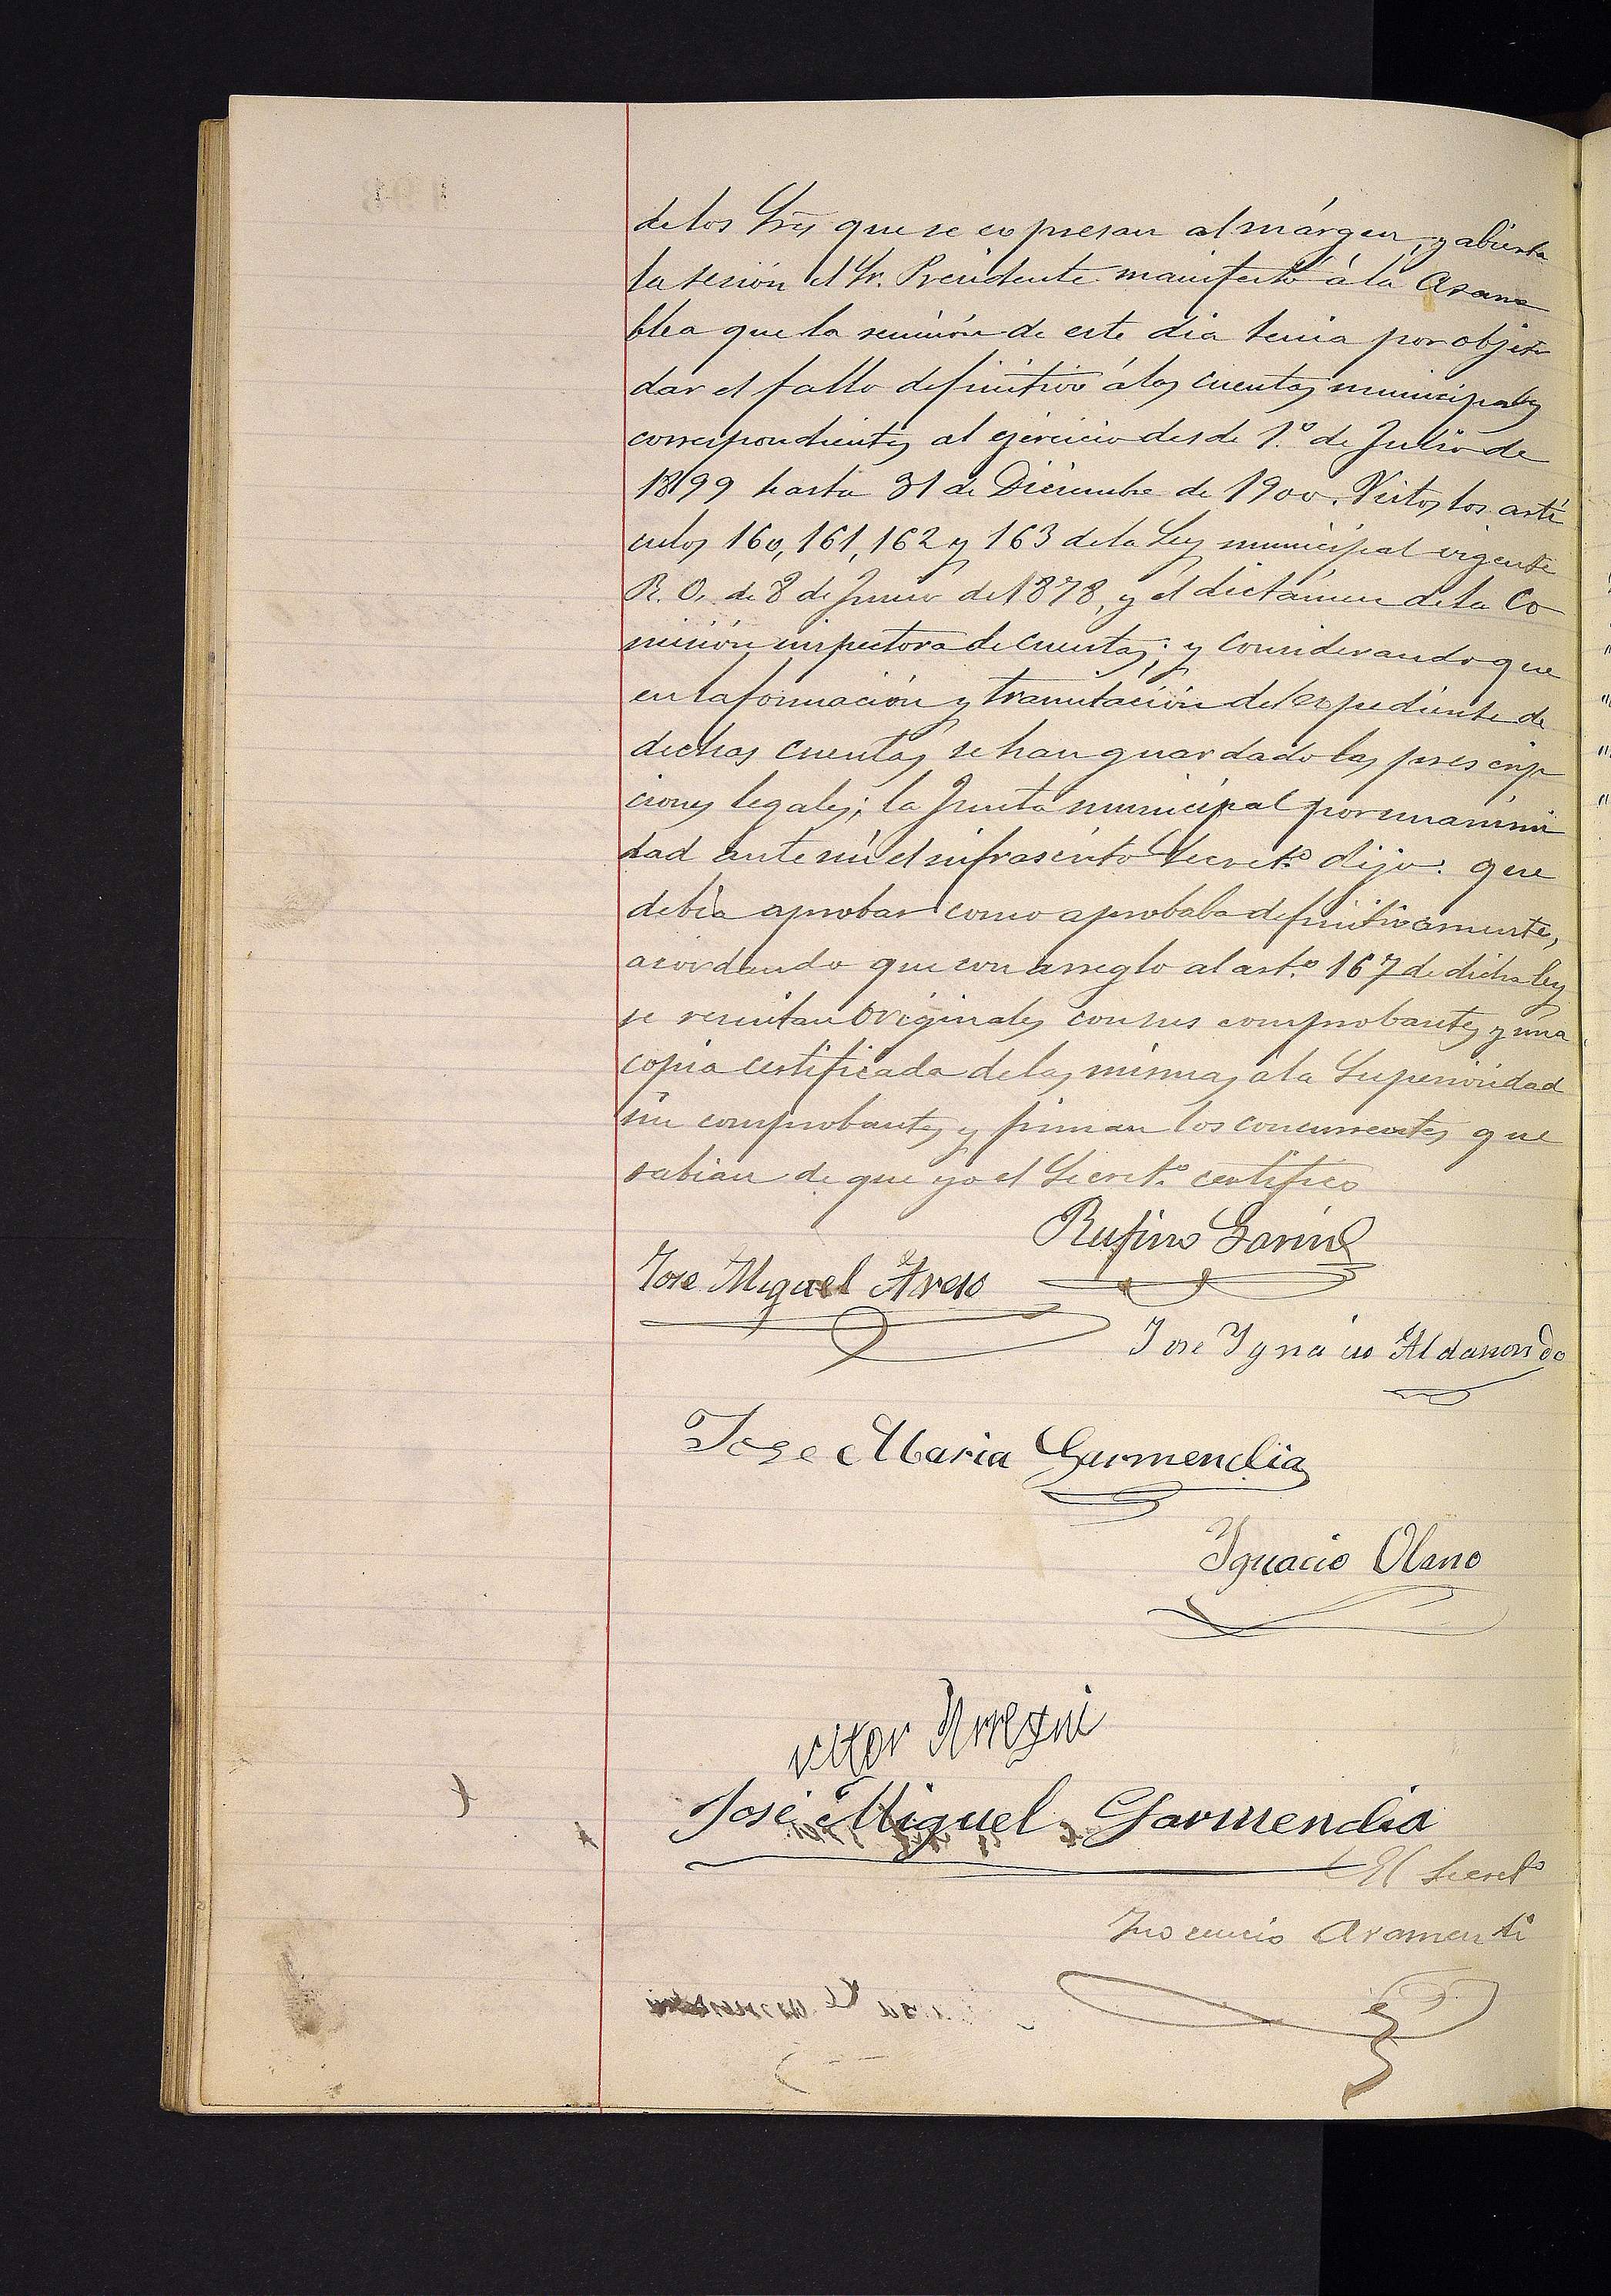 de los Srs que se expresan al márgen, y abierta
la sesión el Sr. Presidente manifestó á la Asam
blea que la reunión de este dia tenia por objeto
dar el fallo definitivo á las cuentas municipales
correspondientes al ejercicio desde 1.º de Julio de
1899 hasta 31 de Diciembre de 1900. Vistos los artí
culos 160, 161, 162 y 163 de la Ley municipal vigente
R. O. de 8 de Junio de 1878, y el dictámen de la Co
misión inspectora de cuentas; y considerando que
en la formación y tramitación del expediente de
dichas cuentas se han guardado las prescrip
ciones legales; la Junta municipal por unanimi
dad ante mi el infrascrito Secretº dijo: que
debia aprobar como aprobaba definitivamente,
acordando que con arreglo al art.º 167 de dicha ley
se remitan originales con sus comprobantes y una
copia certificada de las mismas á la Superioridad
sin comprobantes y firman los concurrentes que
sabian de que yo el Secret.º certifico
Rufino Garin
Jose Miguel Areso
Jose Ygnacio Aldanondo
Jose Maria Garmendia
Ygnacio Olano
victor Urregui
José Miguel Garmendia
El Secretº
Inocencio Aramendi